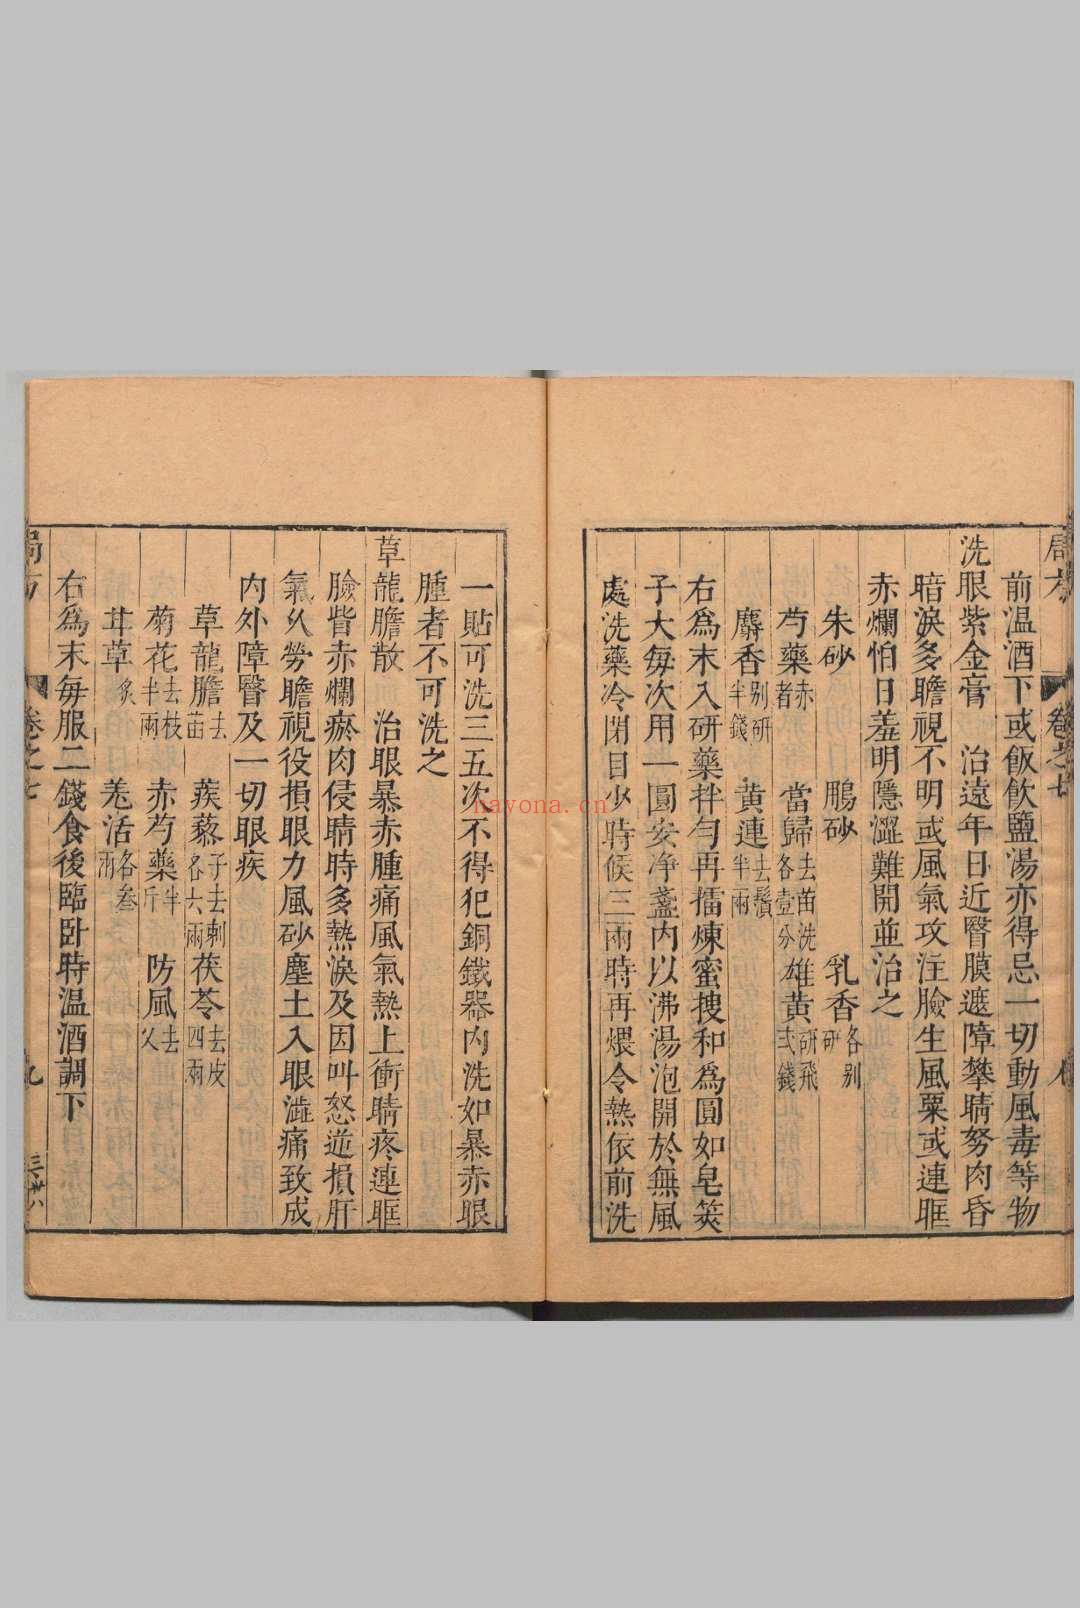 局方 卷之七 八
前温酒下或飯飲鹽湯亦得忌一切動風毒等物
洗眼紫金膏 治遠年日近瞖膜遮障攀睛努肉昏
暗淚多瞻視不明或風氣攻注臉生風粟或連眶
赤爛怕日羞明隱澀難開並治之
朱砂 鵬砂 乳香各别研
芍藥赤者 當歸去苗洗各壹分 雄黃研飛弍錢
麝香别研半錢 黃連去鬚半兩
右爲末入研藥拌勻再擂煉蜜搜和爲圓如皂莢
子大每次用一圓安净盞内以沸湯泡開於無風
處洗藥冷閉目少時候三兩時再煨令熱依前洗
一貼可洗三五次不得犯銅鐵器内洗如暴赤眼
腫者不可洗之
草龍膽散 治眼暴赤腫痛風氣熱上衝睛疼連眶
臉眥赤爛瘀肉侵睛時多熱淚及因叫怒逆損肝
氣久勞瞻視役損眼力風砂塵土入眼澁痛致成
内外障瞖及一切眼疾
草龍膽去苗 蒺藜子去刺各六兩 茯苓去皮四兩
菊花去枝半兩 赤芍藥半斤 防風去乂
甘草炙 羗活各叁兩
右爲末每服二錢食後臨卧時温酒調下
局方 卷之七 九
nayona.cn